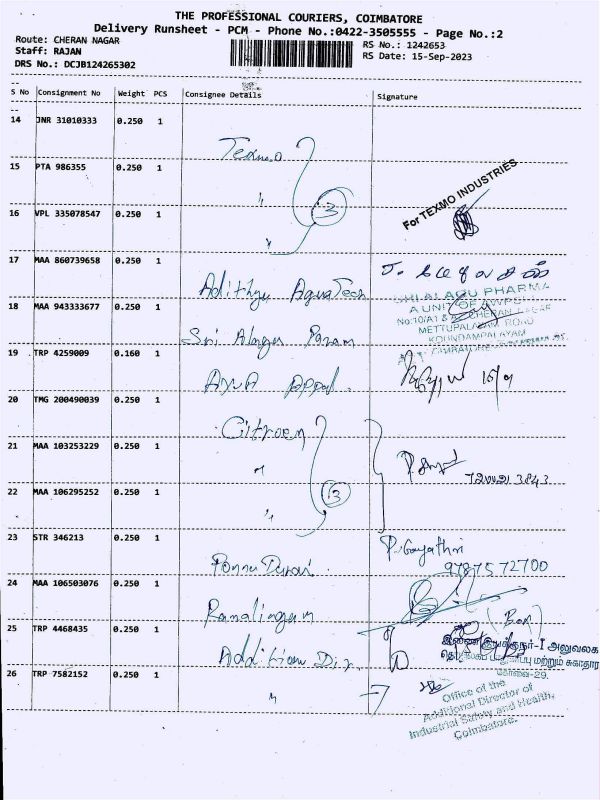 THE PROFESSIONAL COURIERS, COIMBATORE
Delivery Runsheet - PCM - Phone No.:0422-3505555 - Page No.:2
Route: CHERAN NAGAR
RS No.: 1242653
Staff: RAJAN
RS Date: 15-Sep-2023
DRS No.: DCJB124265302
S No Consignment No Weight PCS Consignee Details Signature
14 JNR 31010333 0.250 1 Texmo
15 PTA 986355 0.250 1 〃 3 For TEXMO INDUSTRIES
16 VPL 335078547 0.250 1 〃
17 MAA 860739658 0.250 1 Adithya AquaTech
SRI ALAGU PHARMA
A UNIT OF
METTUPALAYAM ROAD
KOUNDAMPALAYAM
18 MAA 943333677 0.250 1 Sri Alagu
19 TRP 4259009 0.160 1 15/9
20 TMG 200490039 0.250 1 Citroen
21 MAA 103253229 0.250 1 〃 3843
22 MAA 106295252 0.250 1 〃 3
23 STR 346213 0.250 1 Ponnu P. Gayathri
97875 72700
24 MAA 106503076 0.250 1 Ramalingam
25 TRP 4468435 0.250 1 Addition Dir
அலுவலகம்
மற்றும்
கோவை-29.
26 TRP 7582152 0.250 1 〃
Office of the
Additional Director of
Industrial Safety and Health,
Coimbatore.